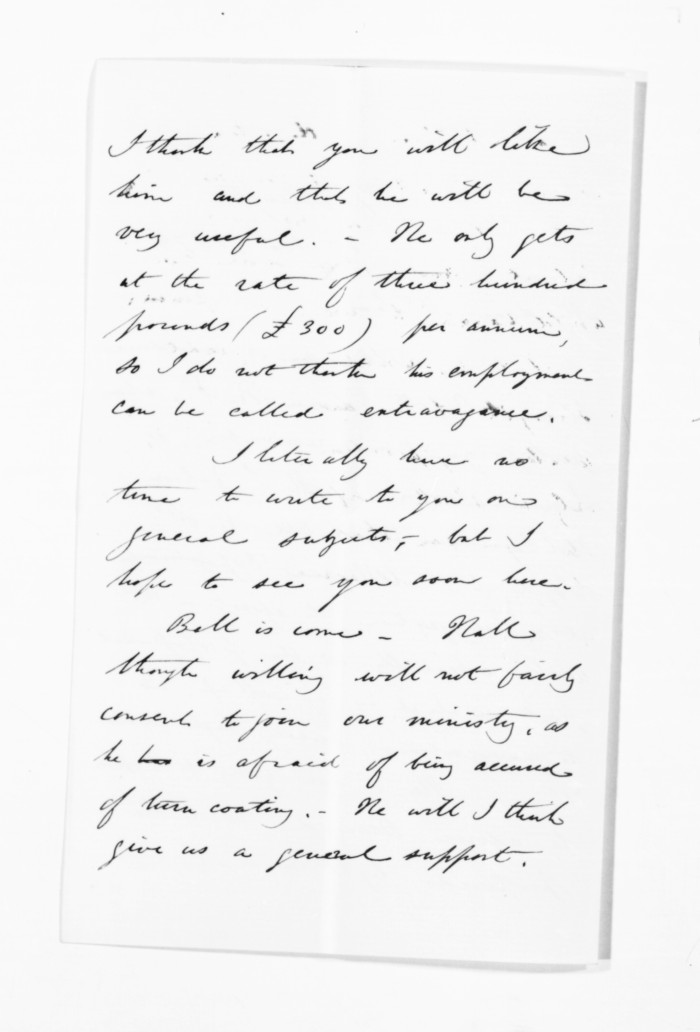 I think that you will like
him and that he will be
very useful. – He only gets
at the rate of three hundred
pounds (£300) per annum,
so I do not think his employment
can be called extravagance.
I literally have no
time to write to you on
general subjects, – but I
hope to see you soon here.
Bell is come – Hall
though willing will not fairly
consent to join our ministry, as
he has is afraid of being accused
of turn coating. – He will I think
give us a general support.